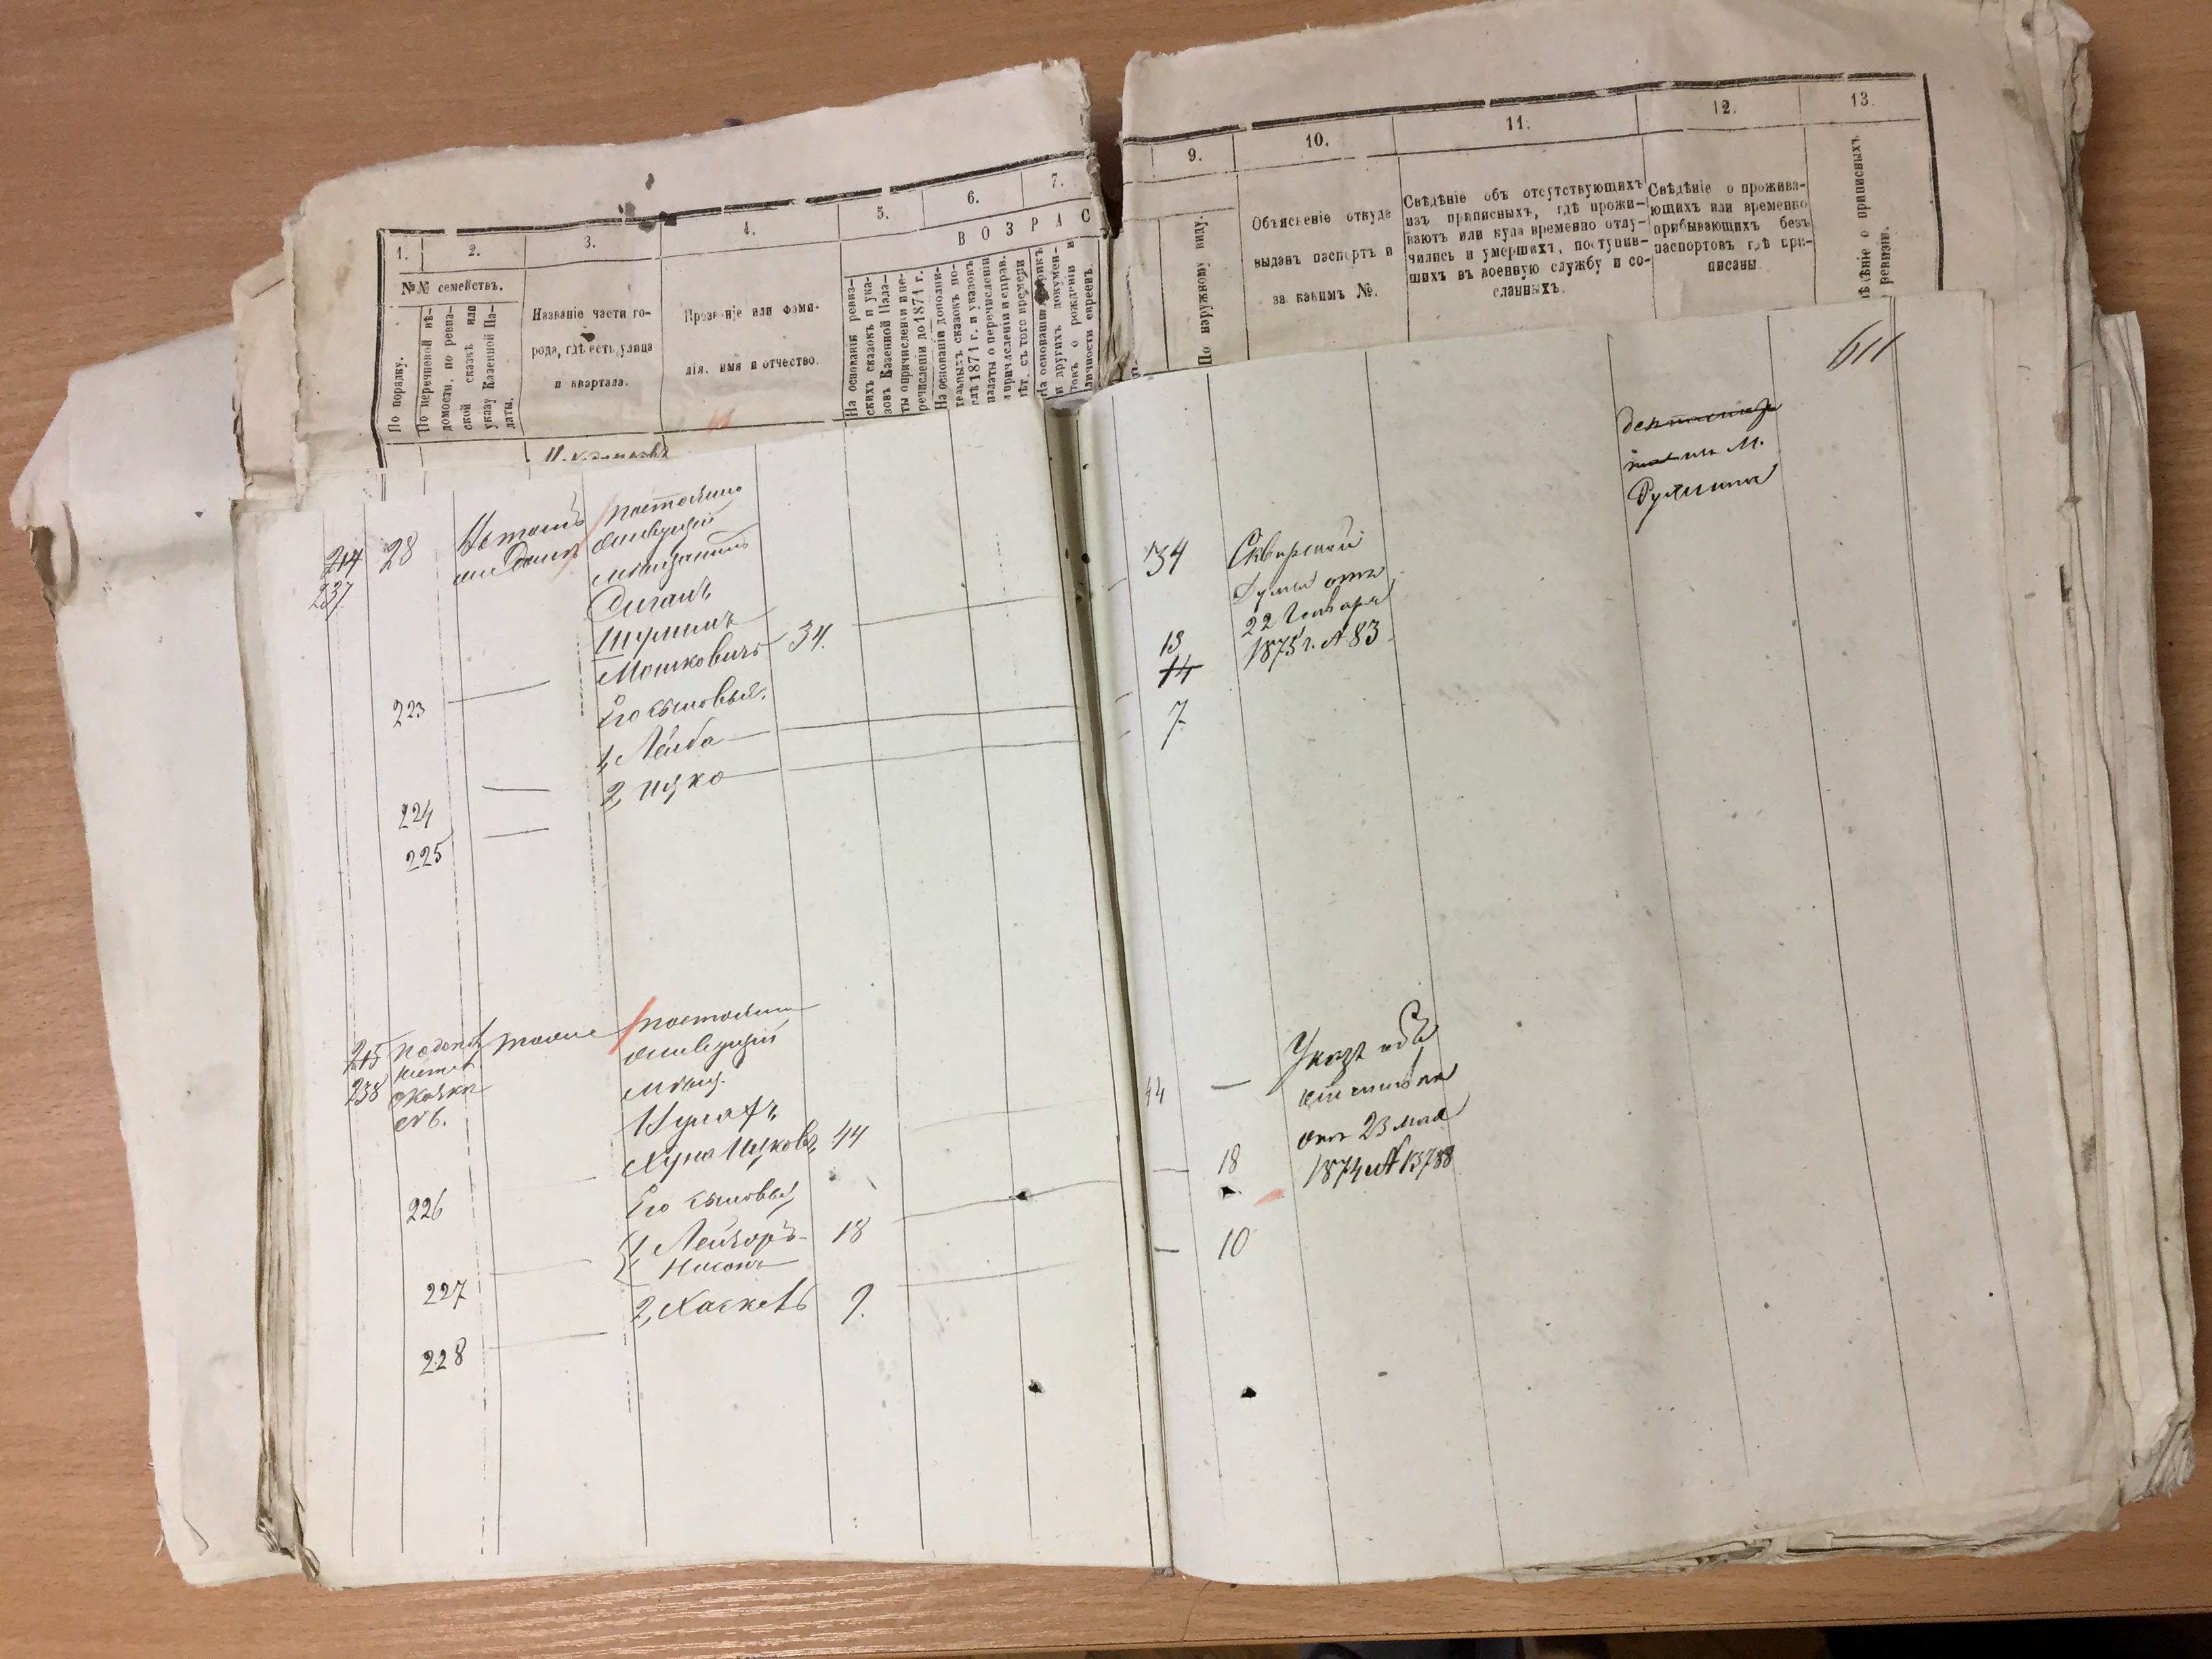 1.
2.
3.
4.
5.
6.
7.
В О З Р А С
№№ семействъ.
По порядку.
По перечневой вѣ-
домости, по ревиз-
ской сказкѣ или
указу Казенной Па-
латы.
Названіе части го-
рода, гдѣ есть, улица
и квартала.
Прозваніе или фами-
лія, имя и отчество.
На основаніи ревиз-
скихъ сказокъ и ука-
зовъ Казенной Пала-
ты о причисленіи и пе-
речисленіи до 1871 г.
На основаніи дополни-
тельныхъ сказокъ по-
слѣ 1871 г. и указовъ
палаты о перечисленіи
и причисленіи и справ.
лѣт. съ того времени
На основаніи метрикъ
и другихъ докумен-
товъ о рожденіи и
личности евреевъ.
9.
10.
11.
12.
13.
По наружному виду.
Объясненіе откуда
выданъ паспортъ и
за какимъ №.
Свѣдѣніе объ отсутствующихъ
изъ приписныхъ, гдѣ прожи-
ваютъ или куда временно отлу-
чились и умершихъ, поступив-
шихъ въ военную службу и со-
сланныхъ.
Свѣдѣніе о прожива-
ющихъ или временно
прибывающихъ безъ
паспортовъ гдѣ при-
писаны
ѣніе о приписныхъ
ревизіи.
611
214
237
28
постоянно
живущій
мѣщанинъ
Циганъ
Шулимъ
Мошковичъ 34.
223
Его сыновья.
1, Лейба
224
2, Ицко
225
34
13
14
7
Сквирской
Думы отъ
22 Января
1875 г. № 83
215
238
тоже
постоянно
живущій
мѣщ.
Ицковъ 44
226
Его сыновья
1, Лейзоръ 18
Нисонъ
227
2, Хаскель 9.
228
44
18
10
Указъ
отъ 23 мая
1874 № 13788